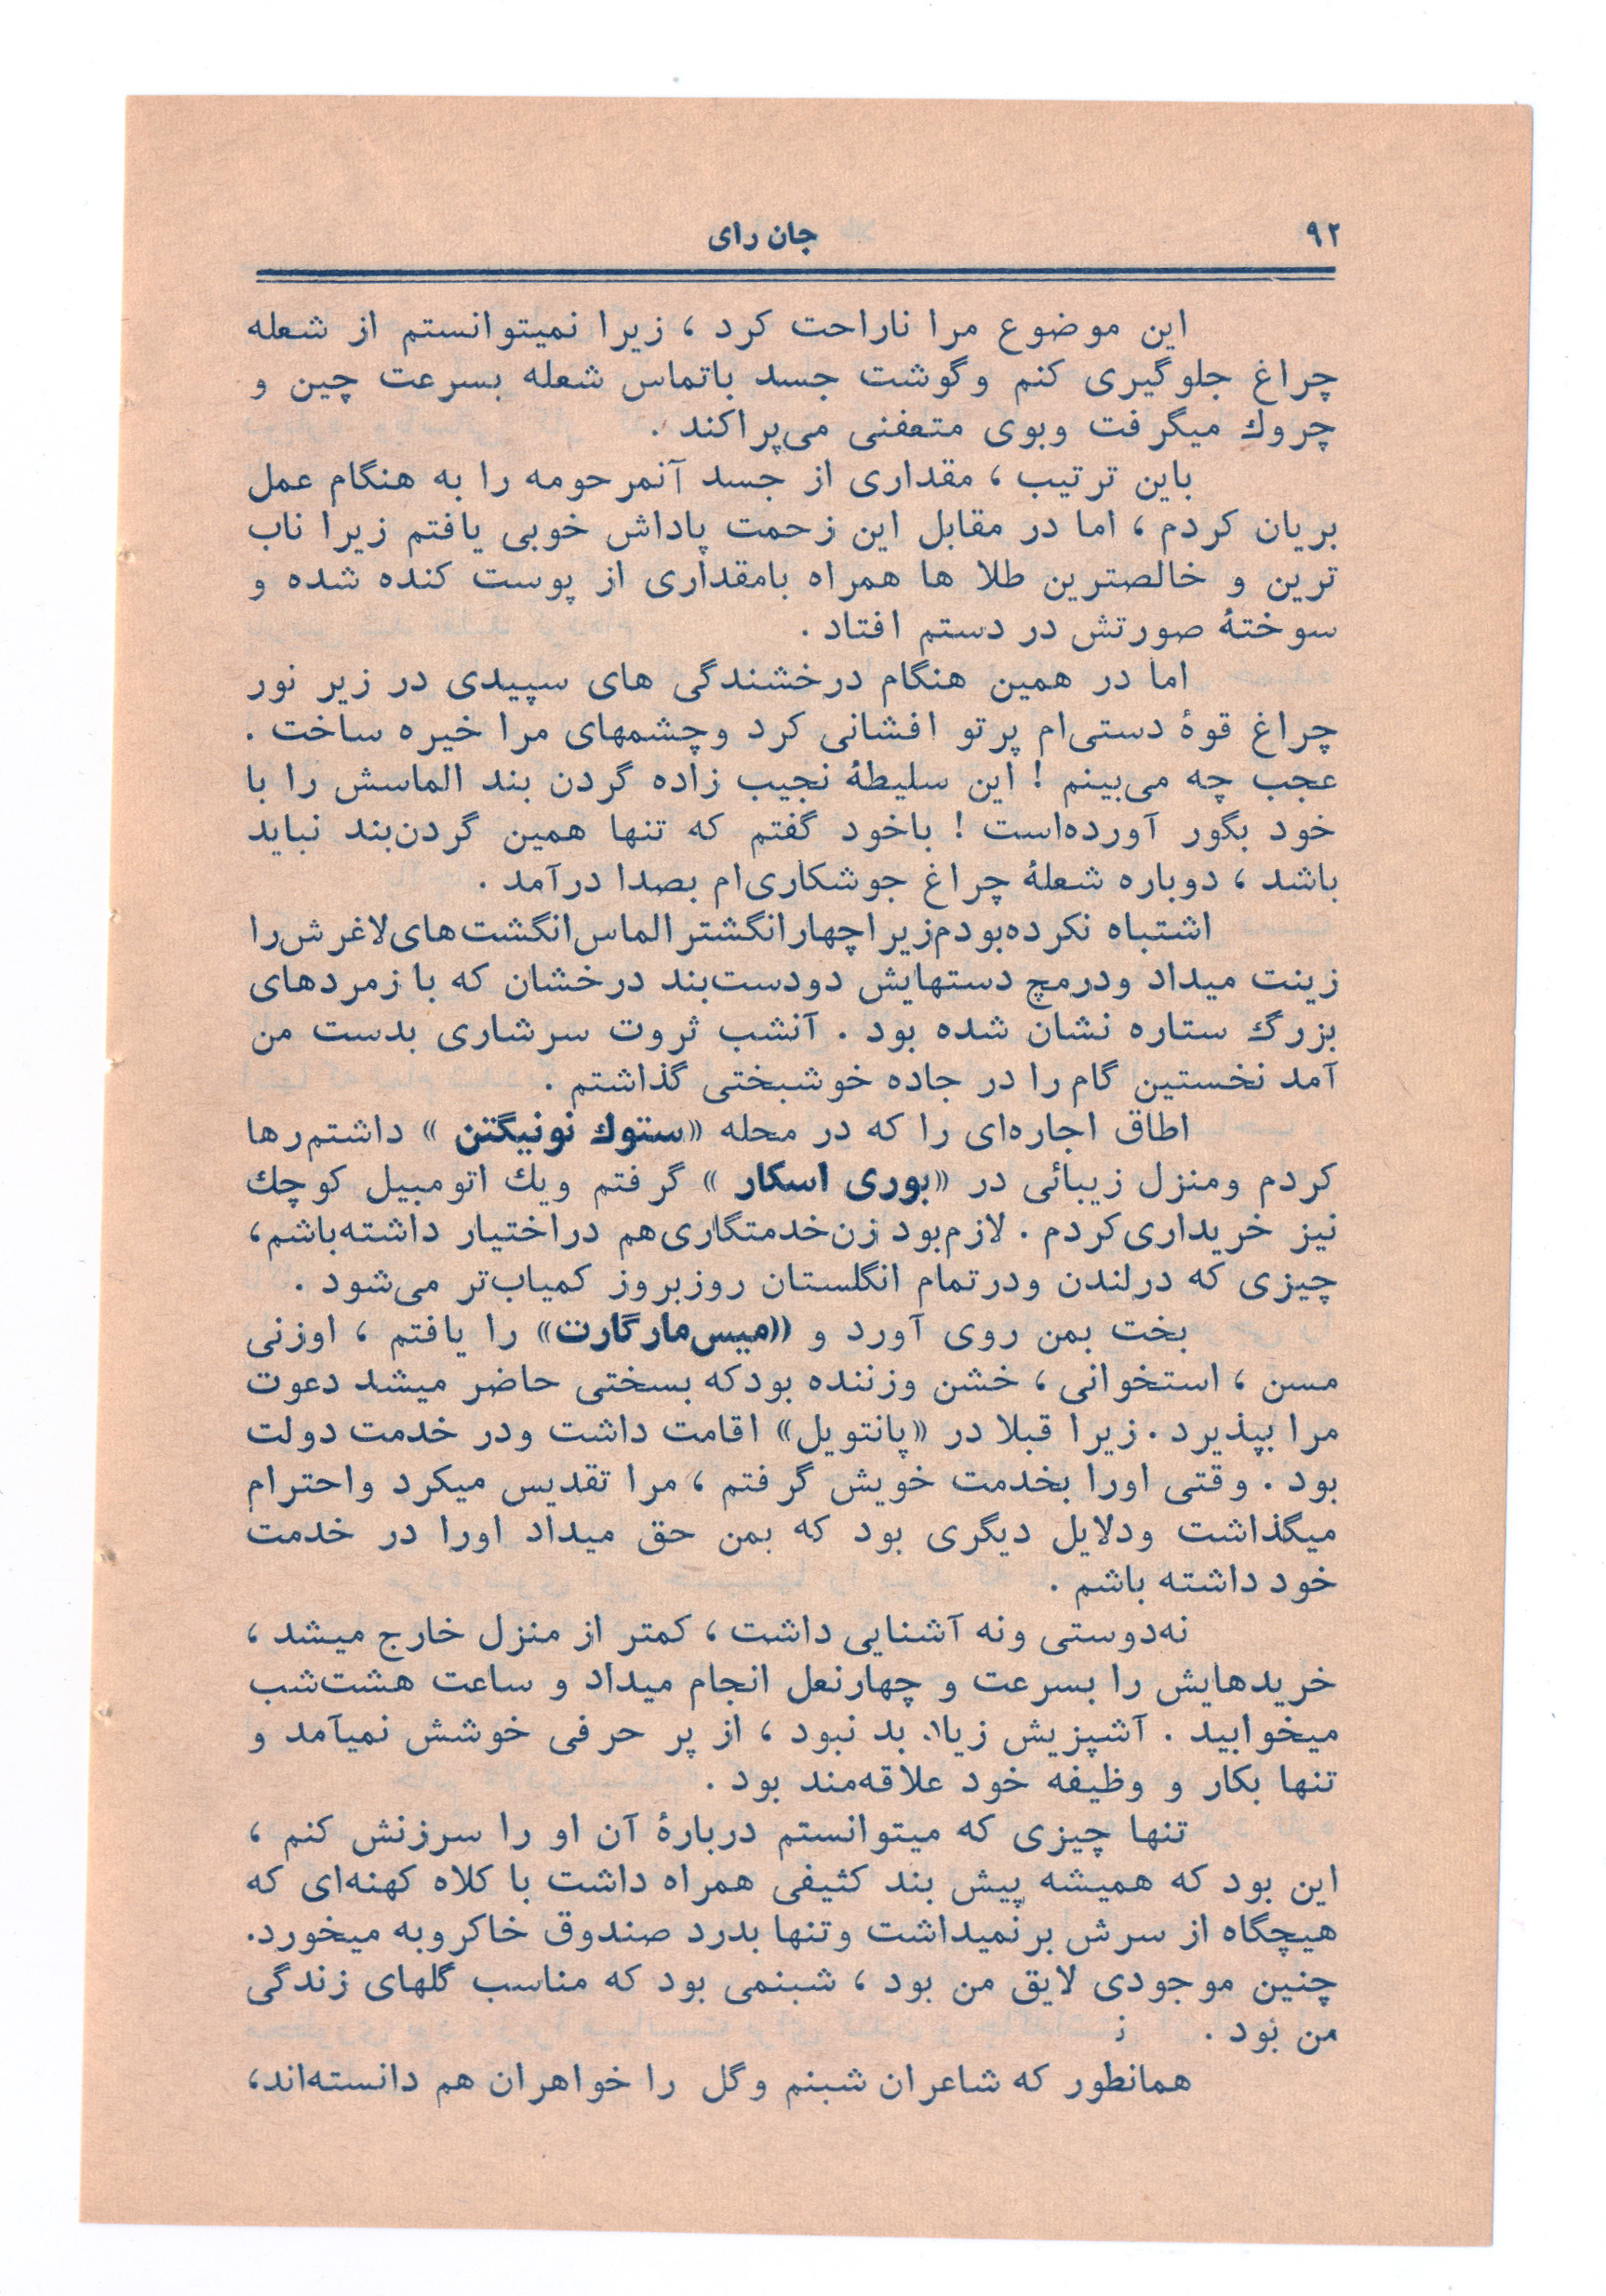 ۹۲
جان رای
این موضوع مرا ناراحت کرد ، زیرا نمیتوانستم از شعله
چراغ جلوگیری کنم وگوشت جسد باتماس شعله بسرعت چین و
چروك میگرفت وبوی متعفنی می‌پراکند .
باین ترتیب ، مقداری از جسد آنمرحومه را به هنگام عمل
بریان کردم ، اما در مقابل این زحمت پاداش خوبی یافتم زیرا ناب
ترین و خالصترین طلا ها همراه بامقداری از پوست کنده شده و
سوختهٔ صورتش در دستم افتاد .
اما در همین هنگام درخشندگی های سپیدی در زیر نور
چراغ قوهٔ دستی‌ام پرتو افشانی کرد وچشمهای مرا خیره ساخت .
عجب چه می‌بینم ! این سلیطهٔ نجیب زاده گردن بند الماسش را با
خود بگور آورده‌است ! باخود گفتم که تنها همین گردن‌بند نباید
باشد ، دوباره شعلهٔ چراغ جوشکاری‌ام بصدا درآمد .
اشتباه نکرده‌بودم‌زیراچهارانگشترالماس‌انگشت‌های‌لاغرش‌را
زینت میداد ودرمچ دستهایش دودست‌بند درخشان که با زمردهای
بزرگ ستاره نشان شده بود . آنشب ثروت سرشاری بدست من
آمد نخستین گام را در جاده خوشبختی گذاشتم .
اطاق اجاره‌ای را که در محله «ستوك نونیگتن » داشتم‌رها
کردم ومنزل زیبائی در «بوری اسکار » گرفتم ویك اتومبیل کوچك
نیز خریداری‌کردم . لازم‌بود زن‌خدمتگاری‌هم دراختیار داشته‌باشم،
چیزی که درلندن ودرتمام انگلستان روزبروز کمیاب‌تر می‌شود .
بخت بمن روی آورد و «میس‌مارگارت» را یافتم ، اوزنی
مسن ، استخوانی ، خشن وزننده بودکه بسختی حاضر میشد دعوت
مرا بپذیرد . زیرا قبلا در «پانتویل» اقامت داشت ودر خدمت دولت
بود . وقتی اورا بخدمت خویش گرفتم ، مرا تقدیس میکرد واحترام
میگذاشت ودلایل دیگری بود که بمن حق میداد اورا در خدمت
خود داشته باشم .
نه‌دوستی ونه آشنایی داشت ، کمتر از منزل خارج میشد ،
خریدهایش را بسرعت و چهارنعل انجام میداد و ساعت هشت‌شب
میخوابید . آشپزیش زیاد بد نبود ، از پر حرفی خوشش نمیآمد و
تنها بکار و وظیفه خود علاقه‌مند بود .
تنها چیزی که میتوانستم دربارهٔ آن او را سرزنش کنم ،
این بود که همیشه پیش بند کثیفی همراه داشت با کلاه کهنه‌ای که
هیچگاه از سرش برنمیداشت وتنها بدرد صندوق خاکروبه میخورد.
چنین موجودی لایق من بود ، شبنمی بود که مناسب گلهای زندگی
من بود .
همانطور که شاعران شبنم وگل را خواهران هم دانسته‌اند،